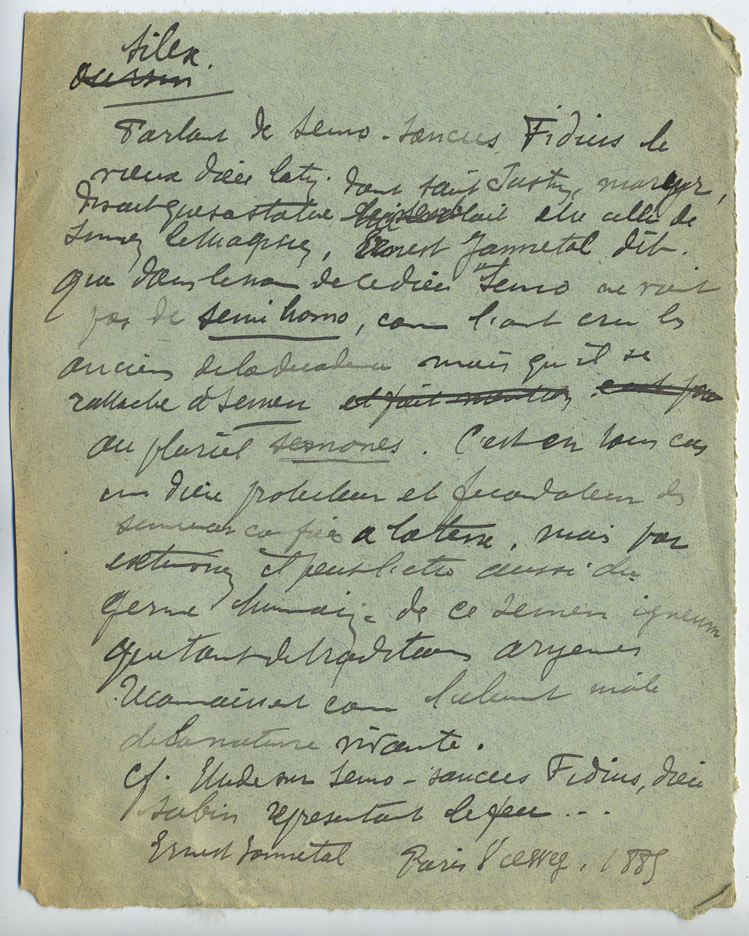 Silex.
oursin
Parlant de Semo-Sancus Fidius le
vieux dieu latin dont saint Justin, martyr,
disait que sa statue être celle de
Simon le Magicien, Ernest Jannetal dit
que dans le nom de ce dieu Semo ne vient
pas de semi homo, comme l'ont cru les
anciens de la décadence mais qu'il se
rattache à Semen et fait mention c'est pour
au pluriel semones. C'est en tous cas
un dieu protecteur et fécondateur des
semences confiées a la terre, mais par
extension il peut l'être aussi du
germe humain de ce semen igneum
que tant de traditions aryennes
reconnaissent comme l'élément mâle
de la nature vivante.
cf. Etude sur Semo-Sancus Fidius, dieu
sabin représentant le feu ...
Ernest Jannetal Paris 1885